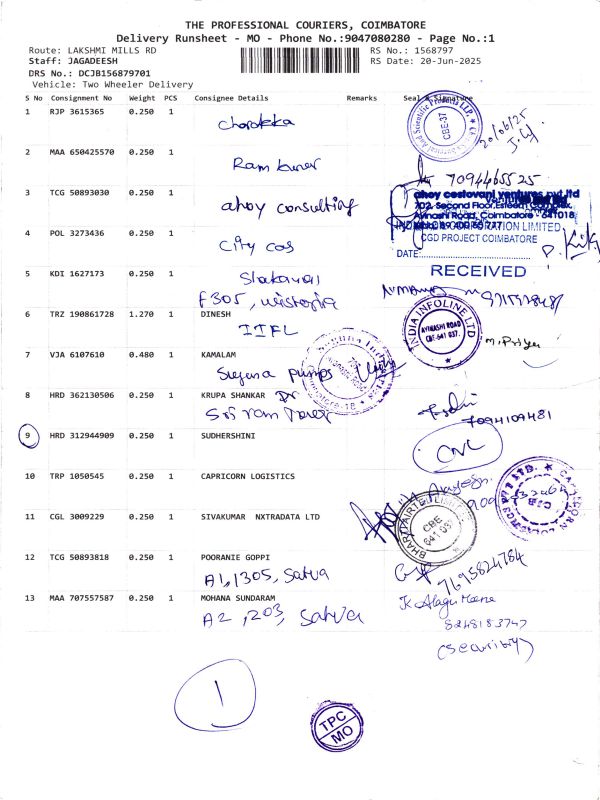 THE PROFESSIONAL COURIERS, COIMBATORE
Delivery Runsheet - MO - Phone No.:9047080280 - Page No.:1
Route: LAKSHMI MILLS RD RS No.: 1568797
Staff: JAGADEESH RS Date: 20-Jun-2025
DRS No.: DCJB156879701
Vehicle: Two Wheeler Delivery
S No Consignment No Weight PCS Consignee Details Remarks Seal & Signature
1 RJP 3615365 0.250 1
CBE-37
20/06/25
2 MAA 650425570 0.250 1
Ram kumar
7094465525
3 TCG 50893030 0.250 1
ahoy consulting
ahoy cestovani ventures pvt ltd
702, Second Floor, Esteem Complex,
Avinashi Road, Coimbatore - 641018
4 POL 3273436 0.250 1
City Cas
CORPORATION LIMITED
CGD PROJECT COIMBATORE
DATE
RECEIVED
5 KDI 1627173 0.250 1
F305, wistoria
6 TRZ 190861728 1.270 1 DINESH
IIFL
INDIA INFOLINE LTD
AVINASHI ROAD
CBE-641 037.
M. Priya
7 VJA 6107610 0.480 1 KAMALAM
Suguna pumps
8 HRD 362130506 0.250 1 KRUPA SHANKAR Dr
Sri ram Tower
7094109481
9 HRD 312944909 0.250 1 SUDHERSHINI
CNL
10 TRP 1050545 0.250 1 CAPRICORN LOGISTICS
CAPRICORN LOGISTICS PVT LTD.
CJB
11 CGL 3009229 0.250 1 SIVAKUMAR NXTRADATA LTD
BHARTI AIRTEL LIMITED
CBE
641 037
12 TCG 50893818 0.250 1 POORANIE GOPPI
A1, 1305, Satva
7695824784
13 MAA 707557587 0.250 1 MOHANA SUNDARAM
A2, 203, Satva
K. Alagu Meena
8248183747
(Security)
1
TPC
MO